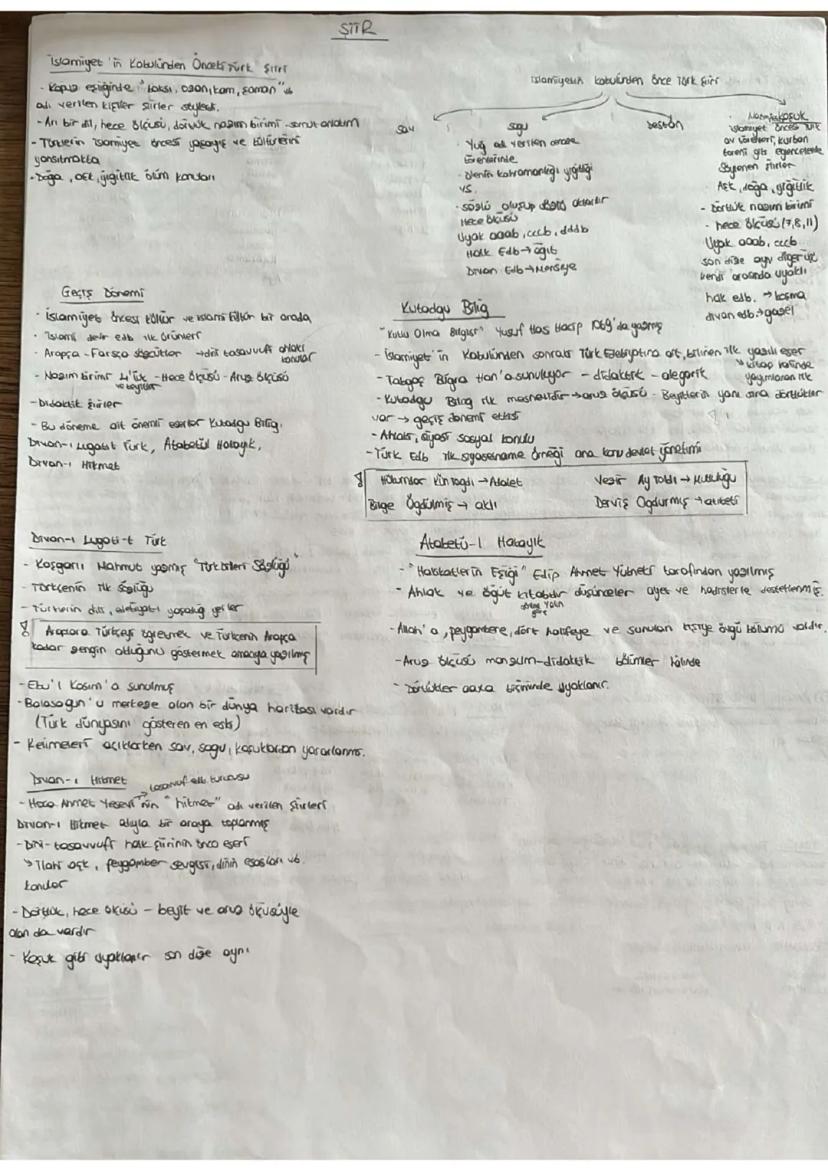 ŞİİR
İslamiyet'in Kabulünden Önceki Türk Şiiri
- Kopuz eşliğinde "baksı, ozan, kam, şaman" vb
adı verilen kişiler şiirler söylerdi.
- Arı bir dil, hece ölçüsü, dörtlük nazım birimi - somut anlatım
- Türklerin İslamiyet öncesi yaşayış ve kültürlerini
yansıtmakta
- Doğa, aşk, yiğitlik ölüm konuları
İslamiyetin kabulünden önce Türk Şiiri
sav
sagu
- Yuğ adı verilen
törenlerinde
- ölenin kahramanlığı yiğitliği
vs.
- sözlü oluşup aktarılır
Hece ölçüsü
Uyak aaab, cccb, dddb
Halk Edb → ağıt
Divan Edb → Mersiye
destan
koşuk
İslamiyet öncesi Türk
av törenleri, kurban
töreni gibi eğlencelerde
söylenen şiirler
- Aşk, doğa, yiğitlik
- Dörtlük nazım birimi
- hece ölçüsü (7,8,11)
Uyak aaab, cccb
son dize aynı diğer üç
kendi arasında uyaklı
halk edb. → koşma
divan edb. → gazel
Geçiş Dönemi
- İslamiyet öncesi kültür ve islami kültür bir arada
- İslami devir edb ilk ürünleri
- Arapça - Farsça sözcükler → dini tasavvufi ahlaki
konular
- Nazım birimi 4'lük - Hece ölçüsü - Aruz ölçüsü
ve beyitler
- Didaktik şiirler
- Bu döneme ait önemli eserler Kutadgu Bilig,
Divan-ı Lugatit Türk, Atabetül Hakayık,
Divan-ı Hikmet
Kutadgu Bilig
"Kutlu Olma Bilgisi" Yusuf Has Hacip 1069'da yazmış
- İslamiyet'in Kabulünden sonraki Türk Edebiyatına ait, bilinen ilk yazılı eser
↘ kitap halinde
yayımlanan ilk
- Tabgaç Buğra Han'a sunuluyor - didaktik - alegorik
- Kutadgu Bilig ilk mesnevidir → aruz ölçüsü - Beyitlerin yanı sıra dörtlükler
var → geçiş dönemi etkisi
- Ahlaki, siyasi sosyal konulu
- Türk Edb ilk siyasetname örneği ana konu devlet yönetimi
Hükümdar Küntogdı → Adalet
Vezir Ay Toldı → Mutluluğu
Bilge Ögdülmiş → aklı
Derviş Odgurmış → akıbeti
Divan-ı Lugati-t Türk
- Kaşgarlı Mahmut yazmış "Türk Dilleri Sözlüğü"
- Türkçenin ilk sözlüğü
- Türklerin dili, edebiyatı yaşadığı yerler
Araplara Türkçeyi öğretmek ve Türkçenin Arapça
kadar zengin olduğunu göstermek amacıyla yazılmış
- Ebu'l Kasım'a sunulmuş
- Balasagun'u merkeze alan bir dünya haritası vardır
(Türk dünyasını gösteren en eski)
- Kelimeleri açıklarken sav, sagu, koşuklardan yararlanmış.
Atabetü-l Hakayık
- "Hakikatlerin Eşiği" Edip Ahmet Yükneki tarafından yazılmış
- Ahlak ve öğüt kitabıdır düşünceler ayet ve hadislerle desteklenmiş.
- Allah'a, peygambere, dört halifeye ve sunulan kişiye övgü bölümü vardır.
- Aruz ölçüsü manzum-didaktik bölümler hâlinde
- Dörtlükler aaxa biçiminde uyaklanır.
Divan-ı Hikmet
→ tasavvuf edb kurucusu
- Hoca Ahmet Yesevi'nin "hikmet" adı verilen şiirleri
Divan-ı Hikmet adıyla bir araya toplanmış
- Dini-tasavvufi halk şiirinin önce eseri
↘ İlahi aşk, peygamber sevgisi, dinin esasları vb.
konular
- Dörtlük, hece ölçüsü - beyit ve aruz ölçüsüyle
olan da vardır
- Koşuk gibi uyaklanır son dize aynı